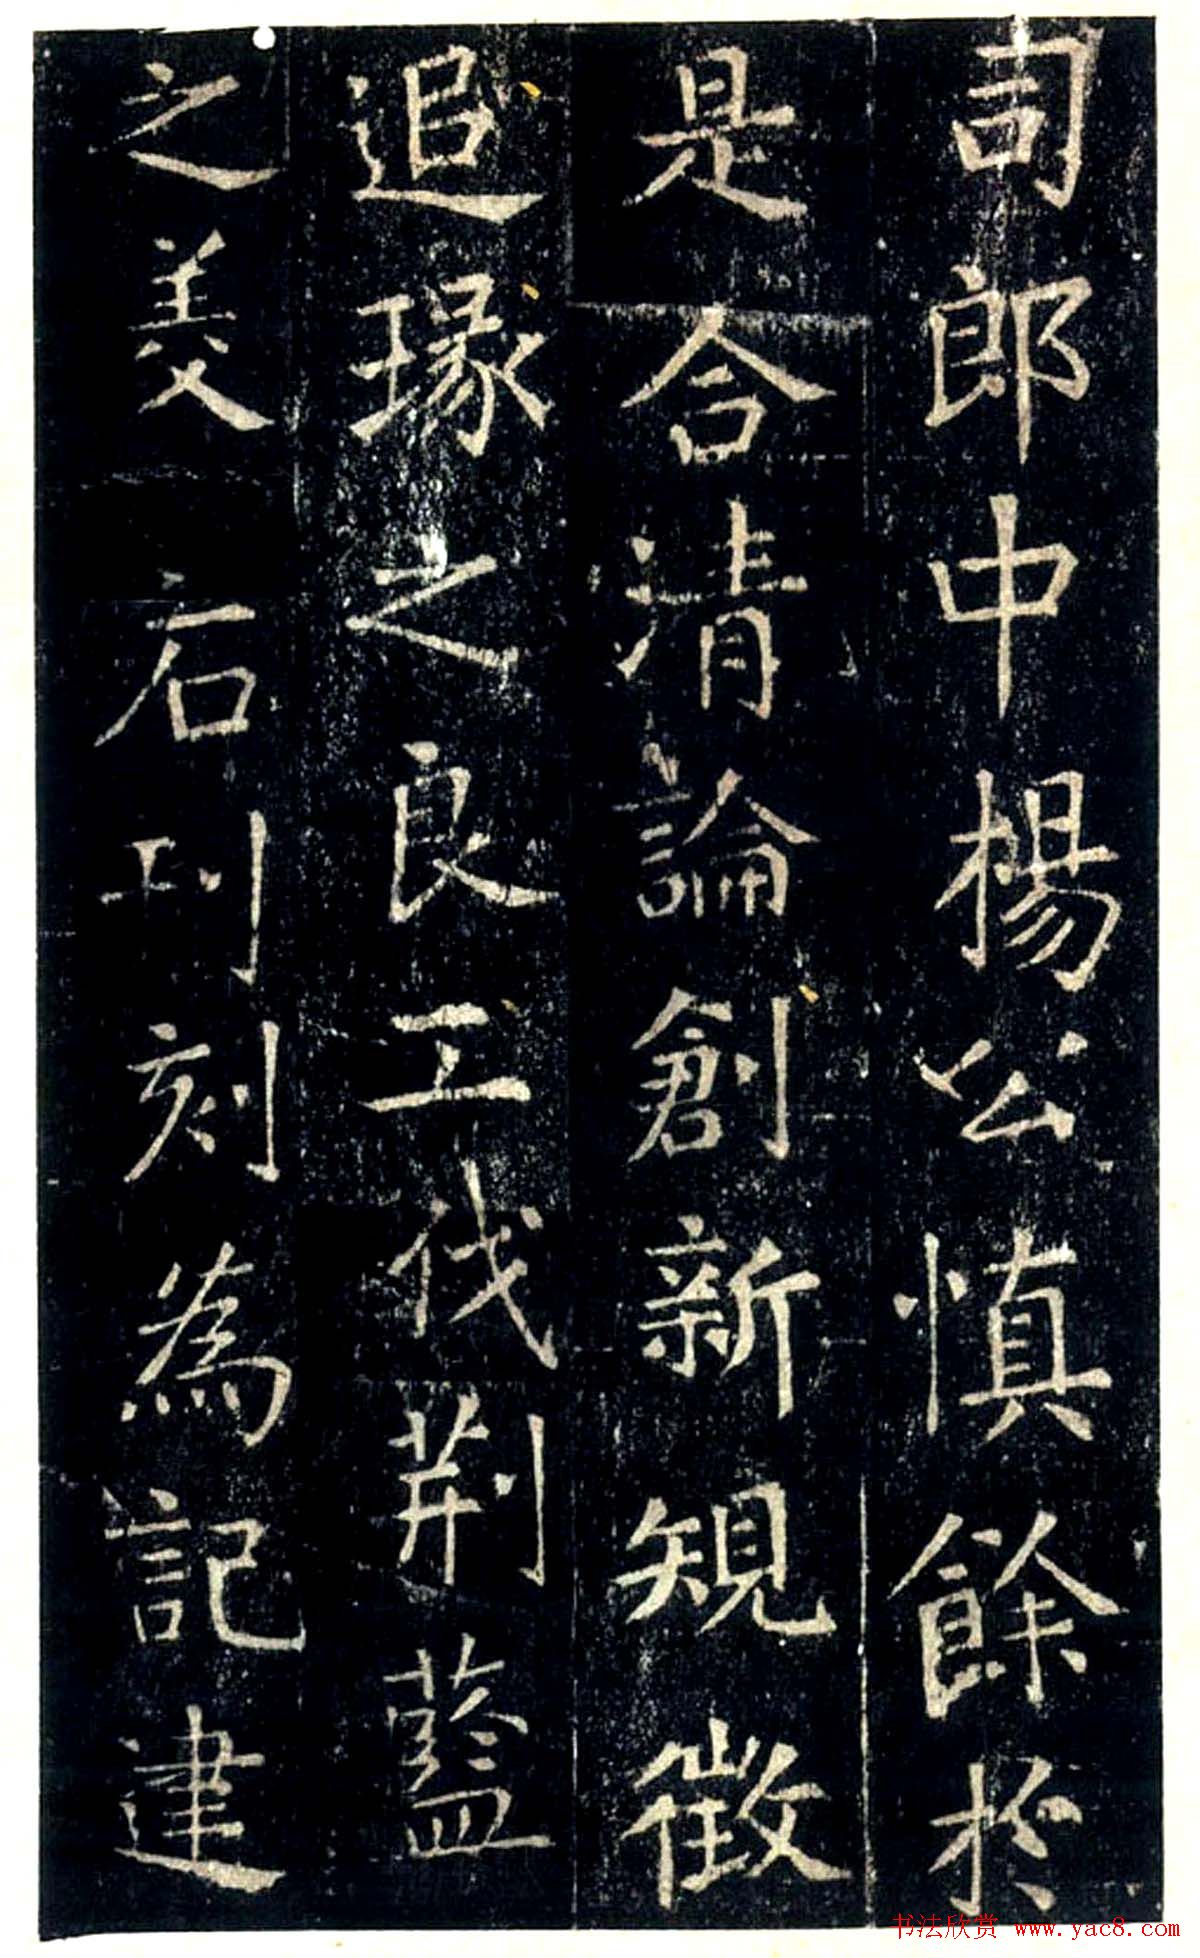 司郎中楊公慎餘於
是合清論創新規徵
追琢之良工伐荆藍
之美石刊刻為記建
书法欣赏 www.yac8.com